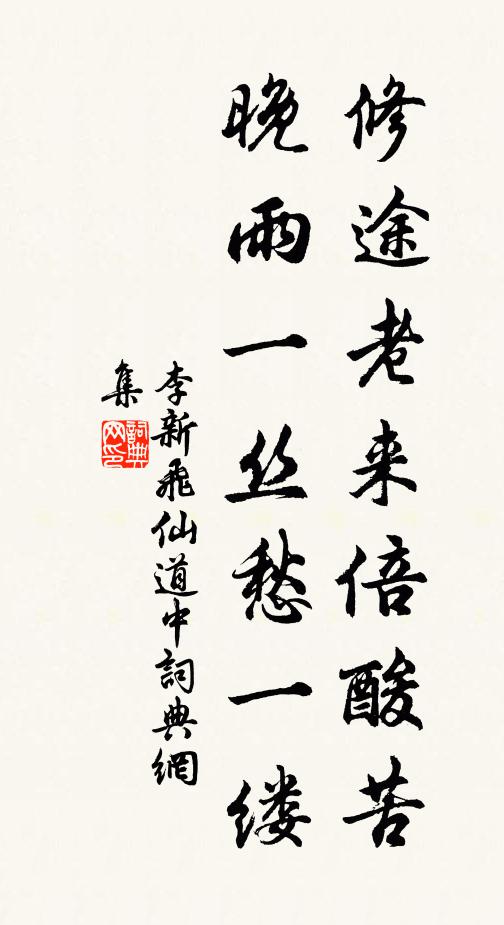 修途老来倍酸苦
晚雨一丝愁一缕
李新飛仙道中詞典網
集
詞典网印